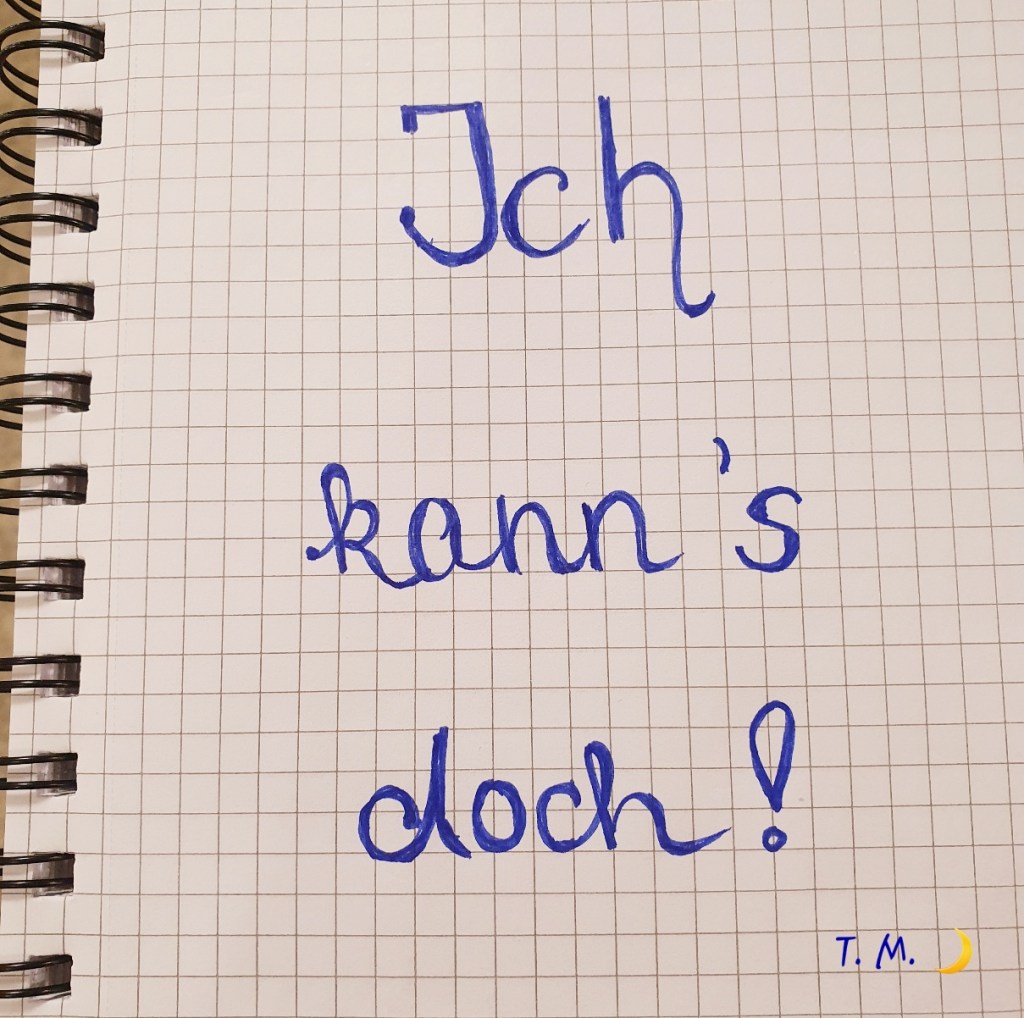 Ich
kann's
doch!
T. M.